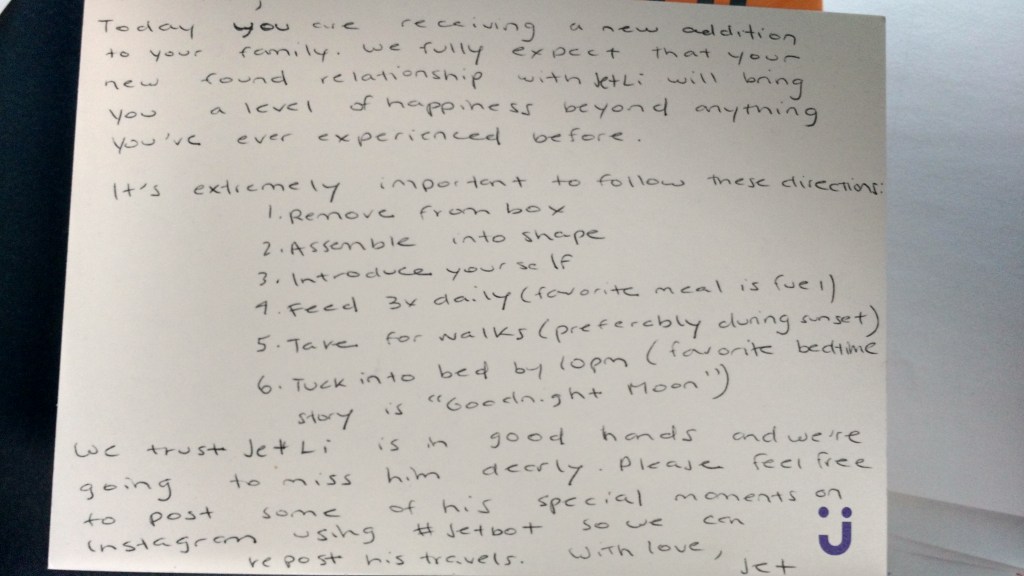 Today you are receiving a new addition
to your family. We fully expect that your
new found relationship with JetLi will bring
you a level of happiness beyond anything
you've ever experienced before.
It's extremely important to follow these directions:
1. Remove from box
2. Assemble into shape
3. Introduce yourself
4. Feed 3x daily (favorite meal is fuel)
5. Take for walks (preferably during sunset)
6. Tuck into bed by 10pm (favorite bedtime
story is "Goodnight Moon")
We trust Jet Li is in good hands and we're
going to miss him dearly. Please feel free
to post some of his special moments on
Instagram using #Jetbot so we can
repost his travels. With love,
Jet